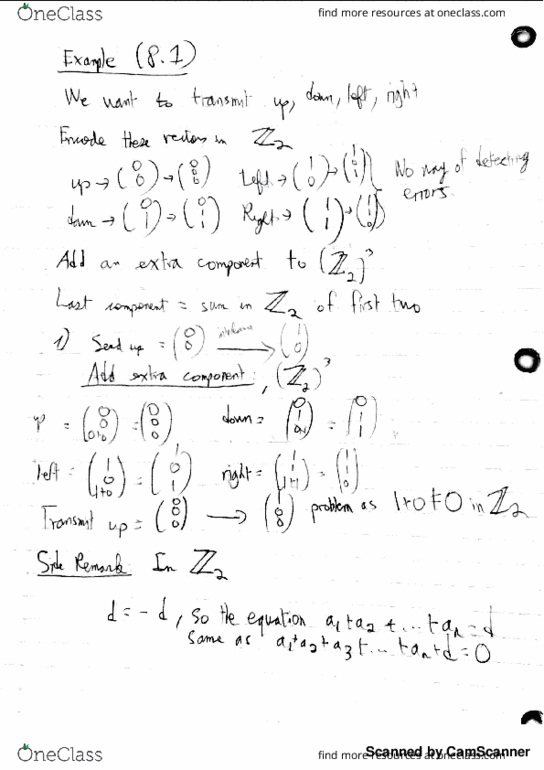 OneClass
find more resources at oneclass.com
Example (8.1)
We want to transmit up, down, left, right
Encode these vectors in ℤ₂
up → (0 0) → (0 0 0) Left → (1 0) → (1 0 1) No way of detecting
down → (0 1) → (0 1 1) Right → (1 1) → (1 1 0) errors
Add an extra component to (ℤ₂)³
Last component = sum in ℤ₂ of first two
1) Send up = (0 0) ⟶ (1 0)
Add extra component, (ℤ₂)³
up = (0 0 0+0) = (0 0 0) down = (0 1 0+1) = (0 1 1)
left = (1 0 1+0) = (1 0 1) right = (1 1 1+1) = (1 1 0)
Transmit up = (0 0 0) ⟶ (1 0 0) problem as 1+0≠0 in ℤ₂
Side Remark: In ℤ₂
d = -d, so the equation a₁+a₂+...+aₙ=d
same as a₁+a₂+a₃+...+aₙ+d=0
OneClass
find more resources at oneclass.com
Scanned by CamScanner